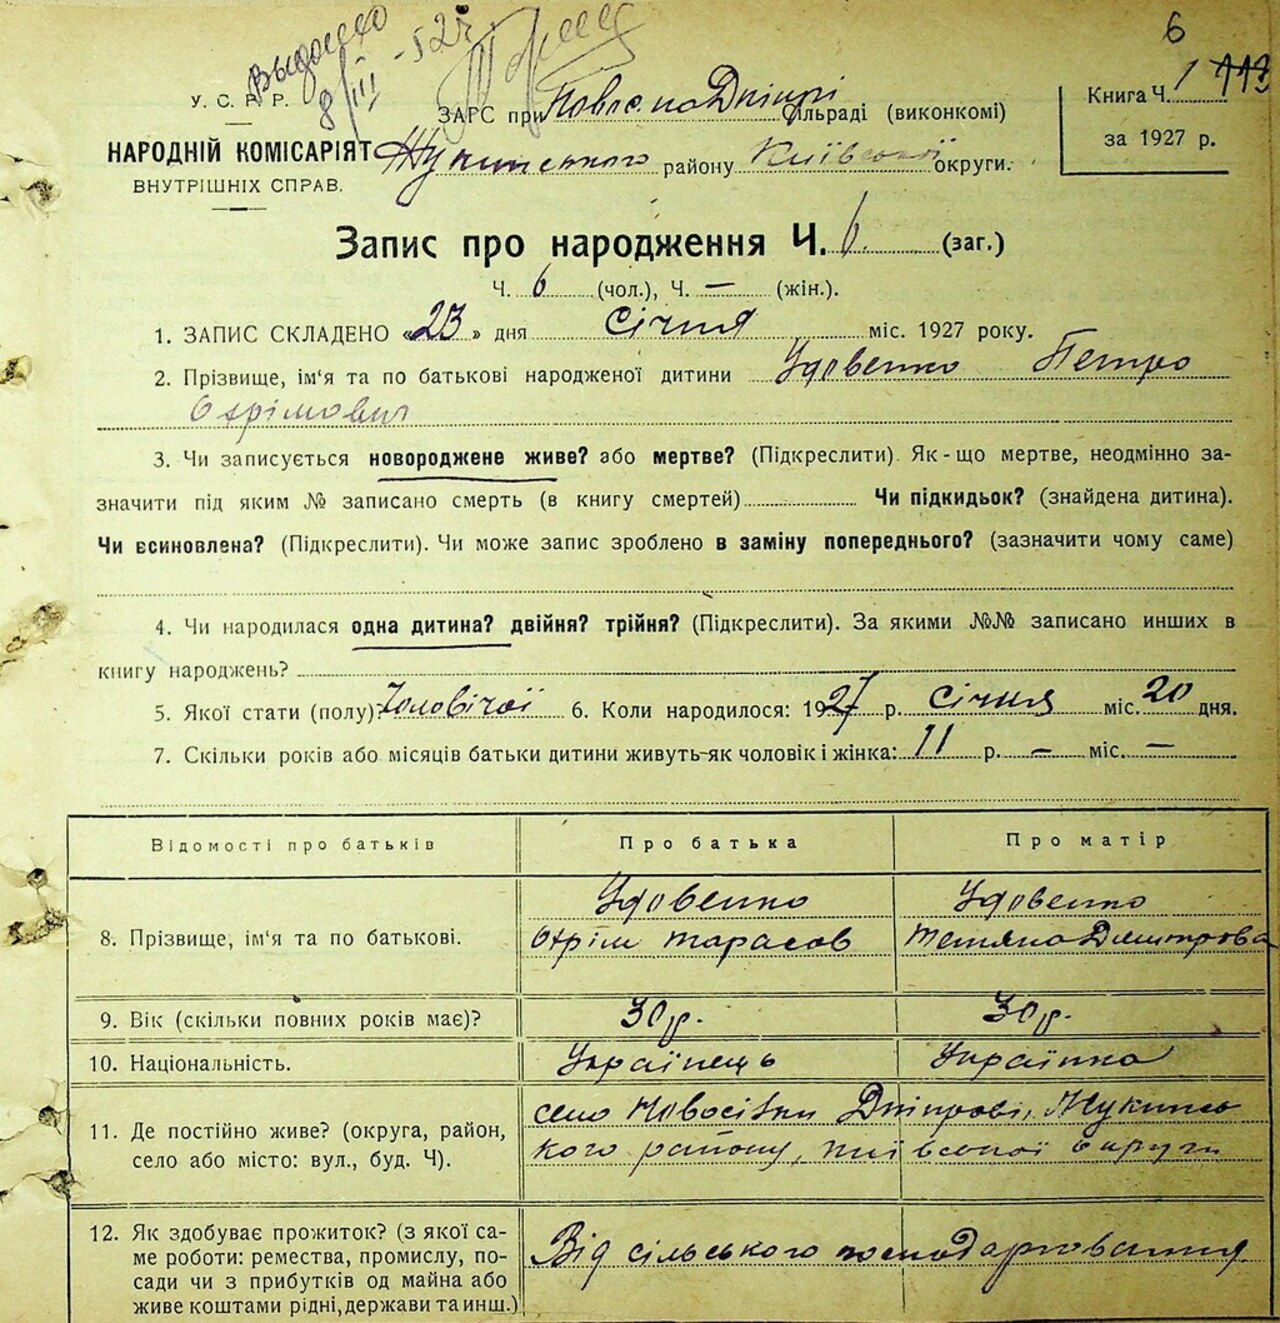 6
Выдано
8/III - 527
У. С. Р. Р.
НАРОДНІЙ КОМІСАРІЯТ
ВНУТРІШНІХ СПРАВ.
ЗАГС при Дніпрі Сільраді (виконкомі)
Жукинського району Київської округи.
Книга Ч. 1 113
за 1927 р.
Запис про народження Ч. 6. (заг.)
Ч. 6 (чол.), Ч. — (жін.).
1. ЗАПИС СКЛАДЕНО «23» дня січня міс. 1927 року.
2. Прізвище, ім‘я та по батькові народженої дитини Удовенко Петро
Охрімович
3. Чи записується новороджене живе? або мертве? (Підкреслити). Як-що мертве, неодмінно за-
значити під яким № записано смерть (в книгу смертей) Чи підкидьок? (знайдена дитина).
Чи всиновлена? (Підкреслити). Чи може запис зроблено в заміну попереднього? (зазначити чому саме)
4. Чи народилася одна дитина? двійня? трійня? (Підкреслити). За якими №№ записано инших в
книгу народжень?
5. Якої стати (полу)? Чоловічої 6. Коли народилося: 1927 р. січня міс. 20 дня.
7. Скільки років або місяців батьки дитини живуть-як чоловік і жінка: 11 р. — міс. —
Відомості про батьків Про батька Про матір
8. Прізвище, ім‘я та по батькові.
Удовенко
Охрім Тарасов
Удовенко
Тетяна Дмитрова
9. Вік (скільки повних років має)? 30 р. 30 р.
10. Національність. Українець Українка
11. Де постійно живе? (округа, район,
село або місто: вул., буд. Ч).
село Новосілки Дніпрові, Жукинсь
кого району, київської округи
12. Як здобуває прожиток? (з якої са-
ме роботи: ремества, промислу, по-
сади чи з прибутків од майна або
живе коштами рідні, держави та инш.)
Від сільського господарювання